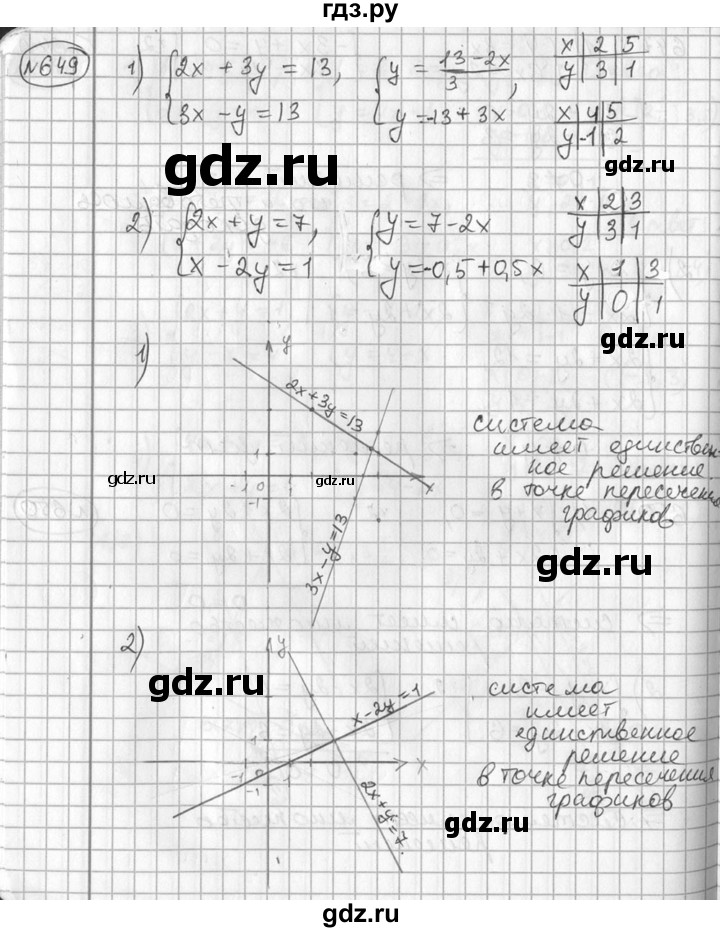 гдз.ру
№649
1) {2x + 3y = 13, {y = (13 - 2x)/3, x | 2 | 5
y | 3 | 1
{3x - y = 13 {y = -13 + 3x x | 4 | 5
y | -1 | 2
gdz.ru
gdz.ru
2) {2x + y = 7, {y = 7 - 2x x | 2 | 3
y | 3 | 1
{x - 2y = 1 {y = -0,5 + 0,5x x | 1 | 3
y | 0 | 1
gdz.ru
gdz.ru
1)
y
2x + 3y = 13
1
-1 0
-1
x
3x - y = 13
gdz.ru
gdz.ru
gdz.ru
система
имеет единствен-
ное решение
в точке пересечения
графиков
gdz.ru
2)
y
x - 2y = 1
1
-1 0
-1
x
2x + y = 7
gdz.ru
gdz.ru
система
имеет
единственное
решение
в точке пересечения
графиков
gdz.ru
гдз.ру